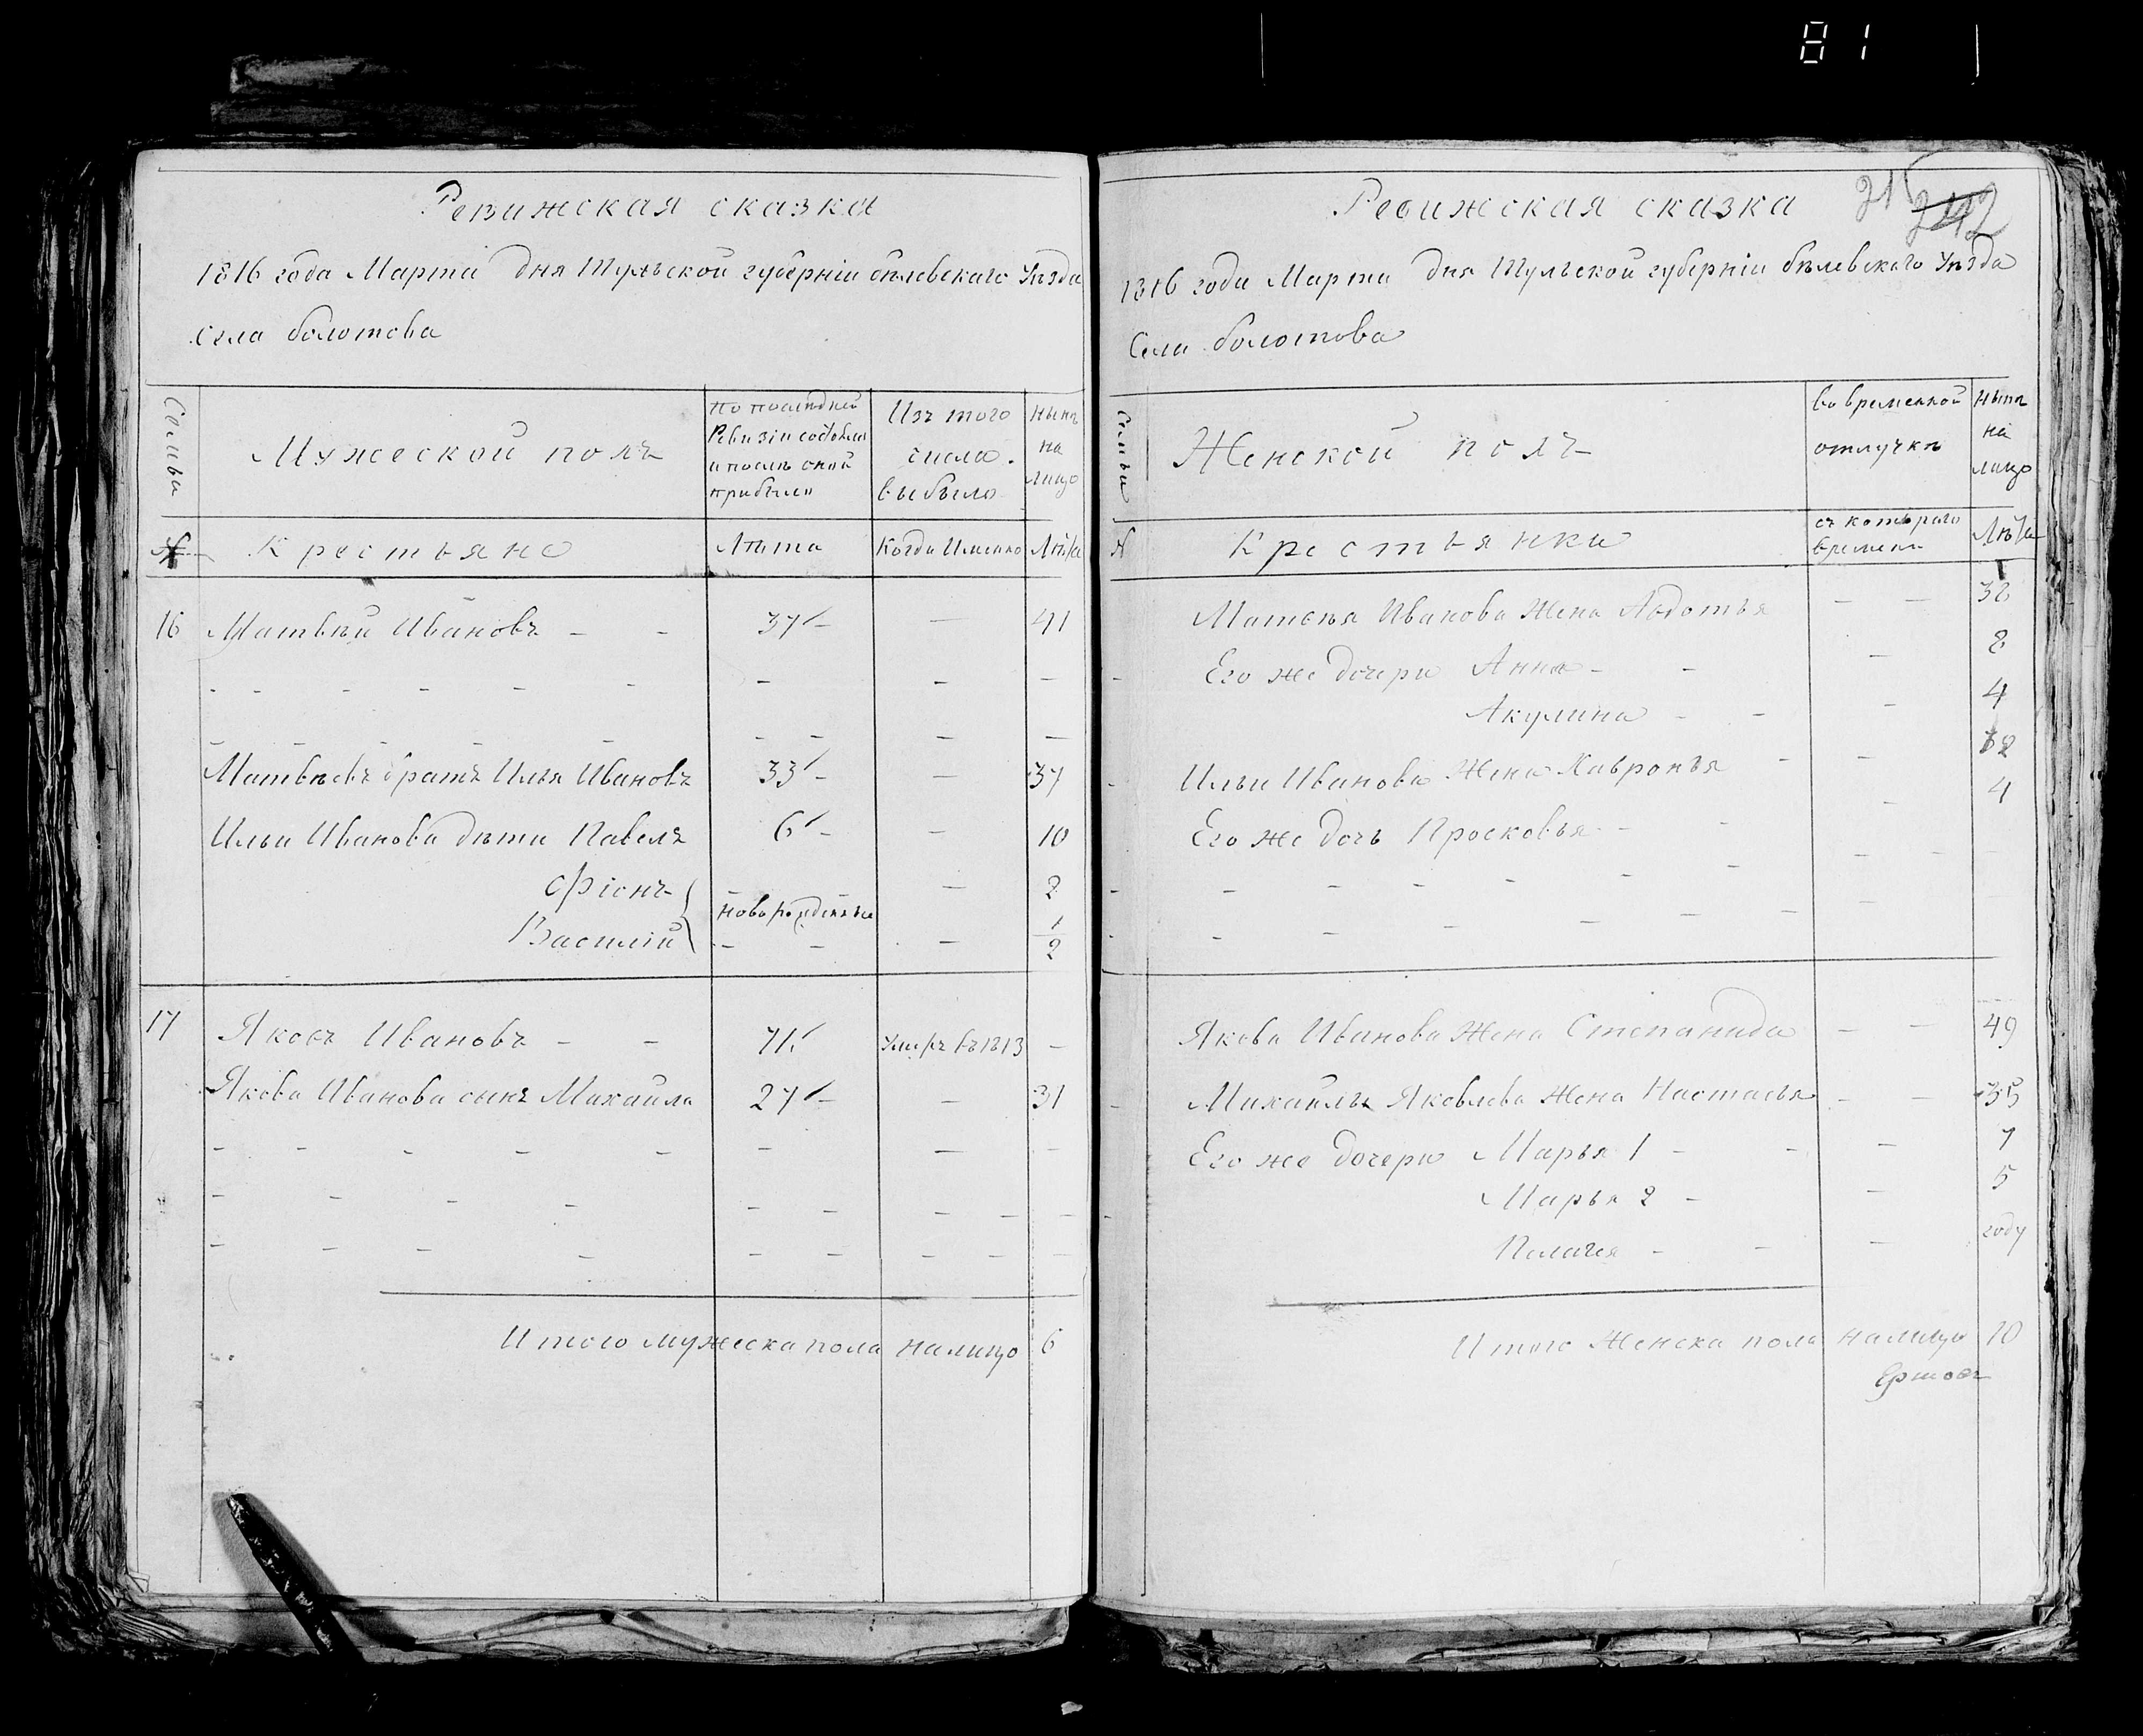 81
Ревижская сказка
1816 года Марта дня Тульской губерніи бѣлевскаго Уѣзда
Села болотова
Семьи
Мужеской полъ
По последней
Ревизіи состояло
и после оной
прибыло
Изъ того
числа
выбыло
Нынѣ
на
лицо
№
Крестьяне
Лѣта
Когда Именно
Лѣта
16 Матвѣй Ивановъ - - 37 - — 41
Матвѣевъ братъ Илья Ивановъ 33 - — 37
Ильи Иванова дѣти Павелъ 6 - — 10
Фіонъ — 2
новорожденные
Василій - - — 1/2
17 Яковъ Ивановъ - - 71 Умре въ 1813 -
Якова Иванова сынъ Михайла 27 - — 31
Итого мужеска пола налицо 6
Ревижская сказка
215
242
1816 года Марта дня Тульской губерніи бѣлевского Уѣзда
Села болотова
Семьи
Женской полъ
Во временной
отлучкѣ
Нынѣ
на
лицо
№
Крестьянки
съ котораго
времени
Лѣта
Матвѣя Иванова Жена Авдотья - - 38
Его же дочери Анна - - - 8
Акулина - - - 4
Ильи Иванова Жена Хавронья - -
Его же дочь Просковья - - - 4
Якова Иванова Жена Степанида - - 49
Михайлы Яковлева Жена Настасья - - 35
Его же дочери Марья 1 - - - 7
Марья 2 - - 5
Пелагея - - - году
Итого Женска пола налицо 10
Ершовъ